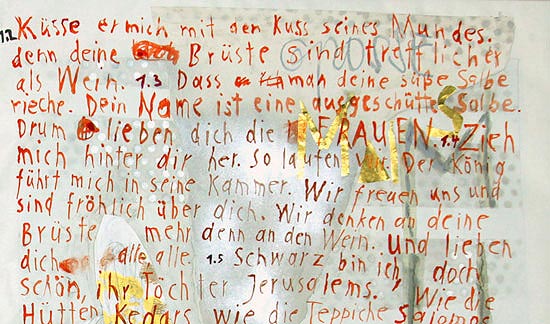 1.2 Küsse er mich mit den Kuss seines Mundes.
denn deine Brüste sind trefflicher
als Wein. 1.3 Dass man deine süße Salbe
rieche. Dein Name ist eine ausgeschütte Salbe.
Drum lieben dich die FRAUEN 1.4 Zieh
mich hinter dir her. so laufen wir. Der König
führt mich in seine Kammer. Wir freuen uns und
sind fröhlich über dich. Wir denken an deine
Brüste mehr denn an den Wein. und lieben
dich alle alle. 1.5 Schwarz bin ich, doch
schön, ihr Töchter Jerusalems. Wie die
Hütten Kedars wie die Teppiche Salomos